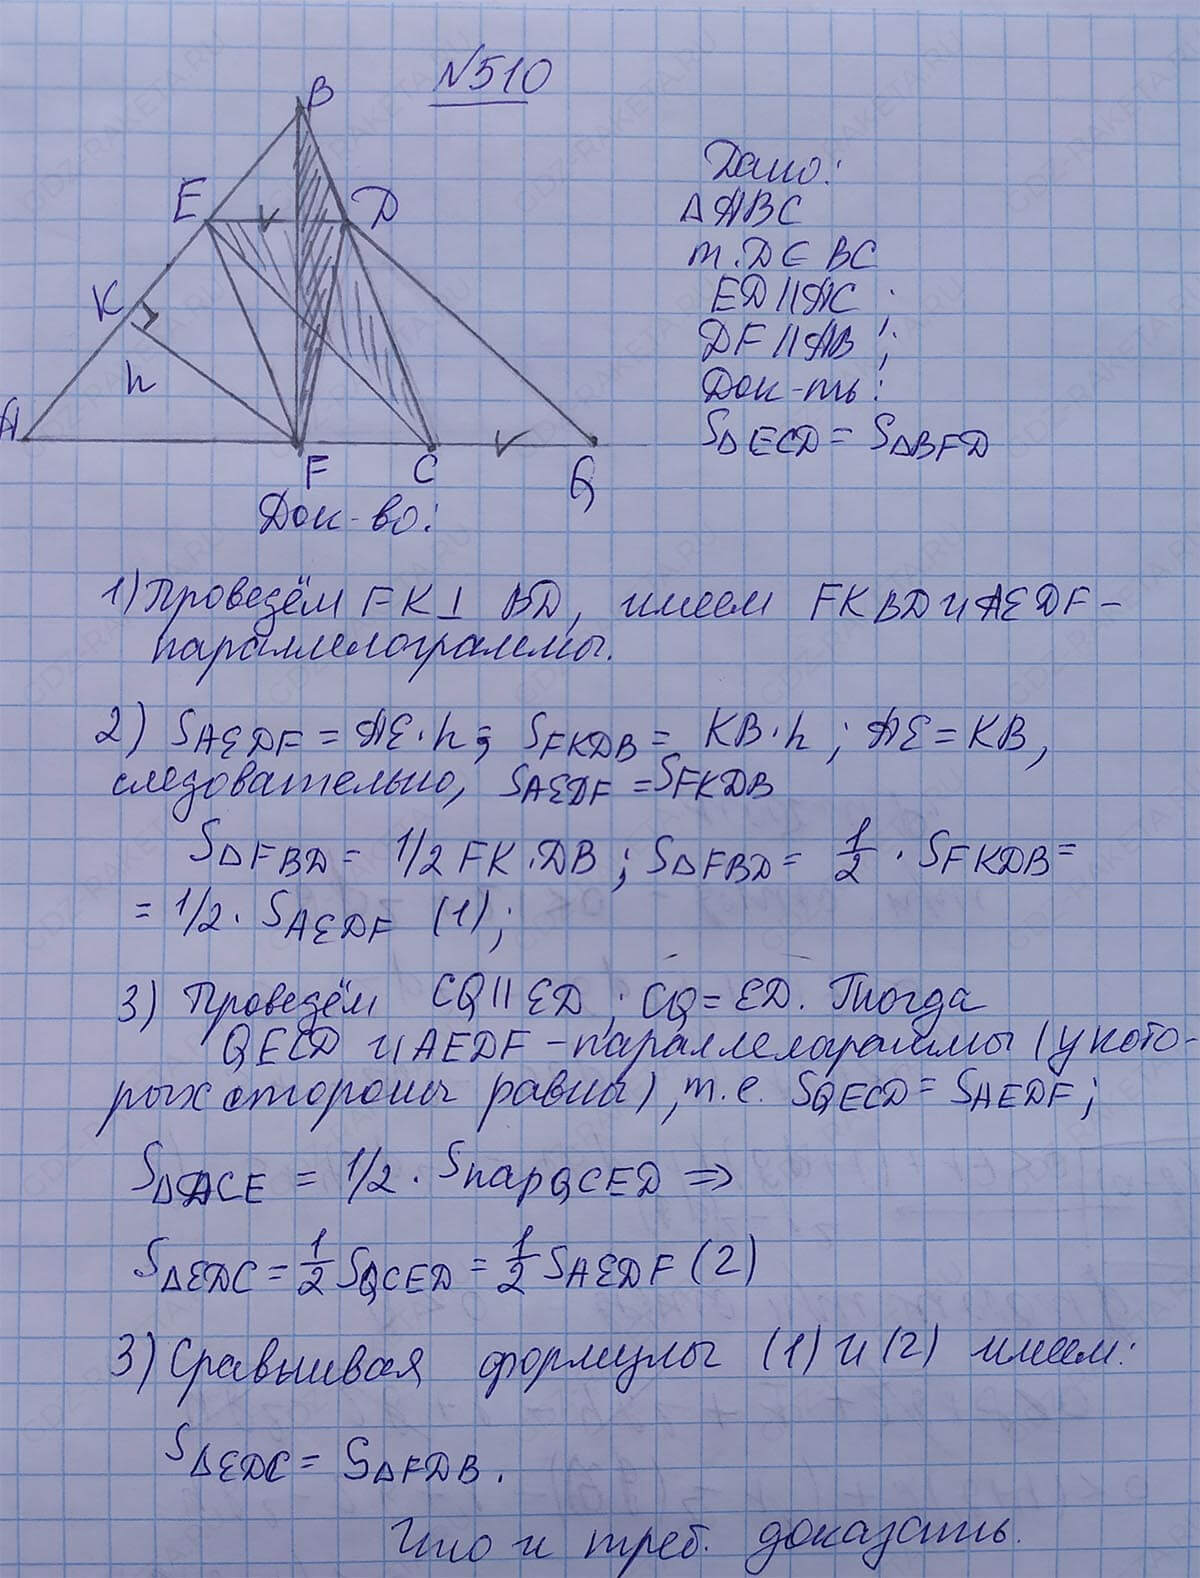 №510
B
E
D
K
h
A
F
C
Q
Дано:
△ABC
т.D∈BC
ED||AC;
DF||AB;
Док-ть:
S△ECD = S△BFD
Док-во:
1) Проведём FK⊥ BD, имеем FKBD и AEDF –
параллелограммы.
2) SAEDF = AE·h; SFKDB = KB·h; AE=KB,
следовательно, SAEDF = SFKDB
S△FBD = 1/2 FK·DB; S△FBD = 1/2 · SFKDB =
= 1/2 · SAEDF (1);
3) Проведём CQ||ED; CQ=ED. Тогда
QECD и AEDF – параллелограммы (у кото-
рых стороны равны), т.е. SQECD = SAEDF;
S△DCE = 1/2 · SпарQCED ⇒
S△EDC = 1/2 SQCED = 1/2 SAEDF (2)
3) Сравнивая формулы (1) и (2) имеем:
S△EDC = S△FDB.
Что и треб. доказать.